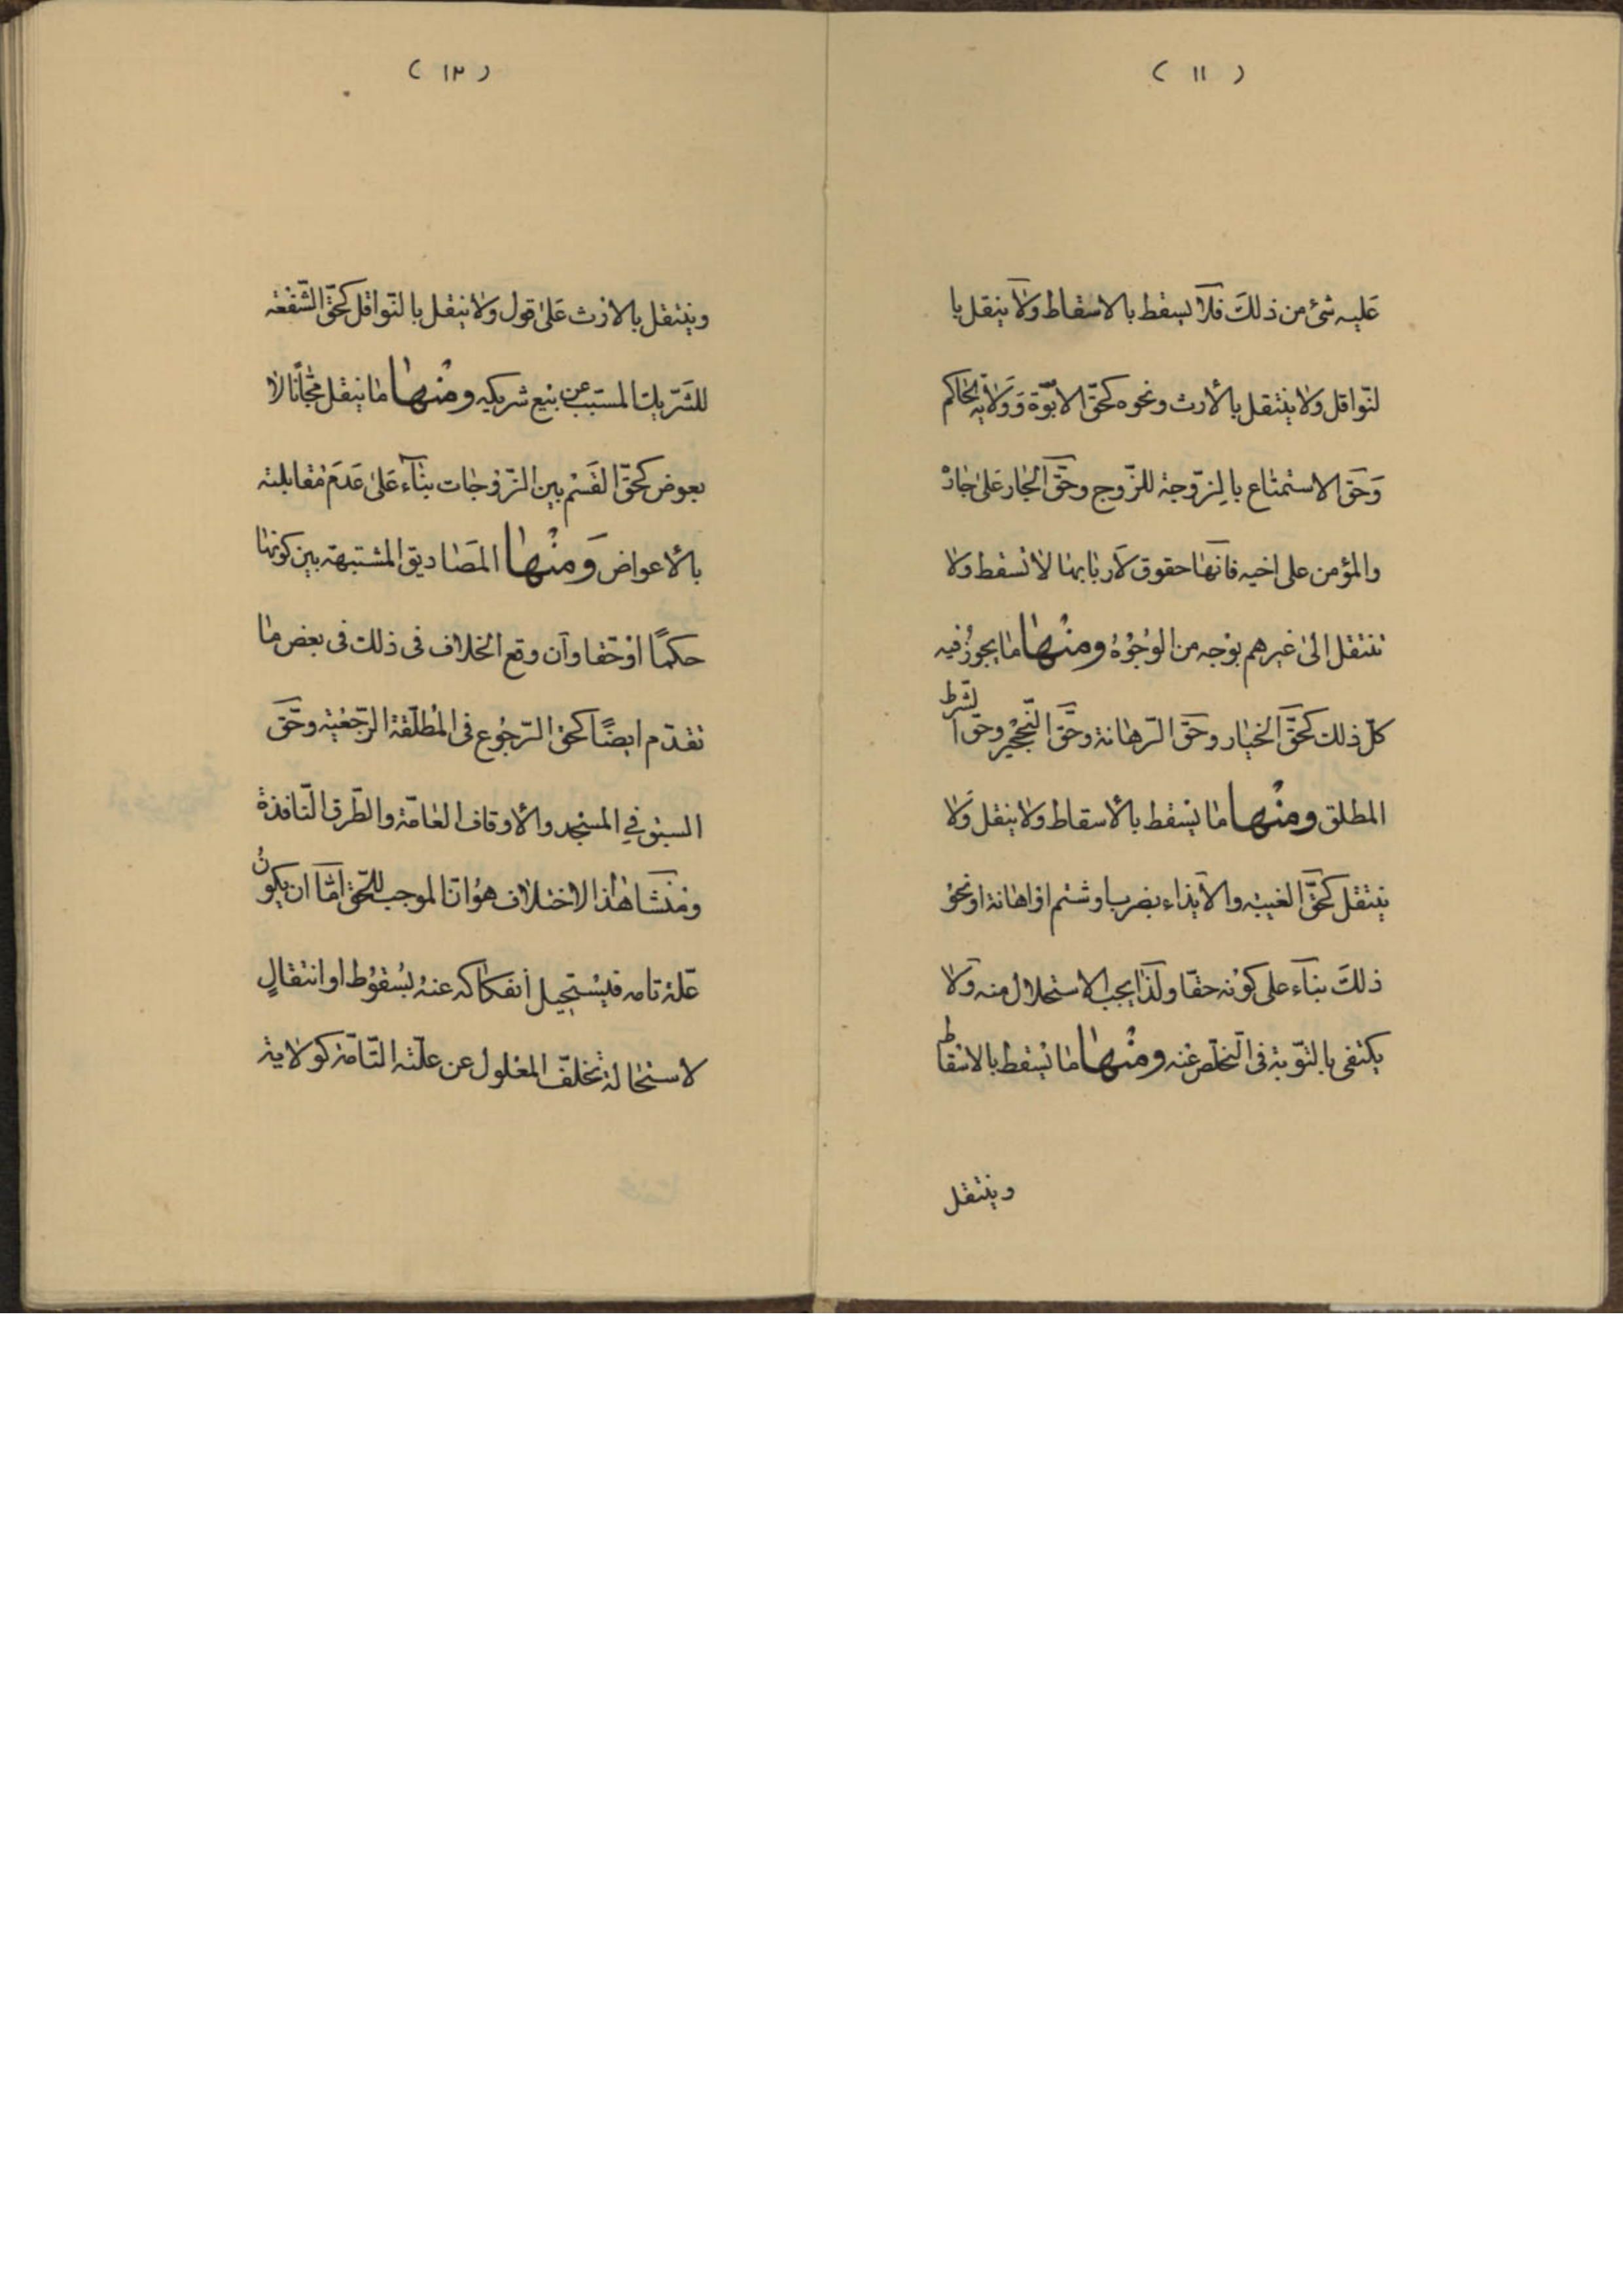 ( ١١ )
عليه شئ من ذلك فلا يسقط بالاسقاط ولا ينقل با
لنّواقل ولا ينتقل بالأرث ونحوه كحقّ الابوّة وولاية الحاكم
وحقّ الاستمتاع بالزّوجة للزّوج وحقّ الجار على جاره
والمؤمن على اخيه فانّها حقوق لأربابها لا تسقط ولا
تنتقل الى غيرهم بوجه من الوجوه ومنها ما يجوز فيه
كلّ ذلك كحقّ الخيار وحقّ الرّهانة وحقّ التّحجير وحق الشّرط
المطلق ومنها ما يسقط بالأسقاط ولا ينقل ولا
ينتقل كحقّ الغيبة والأيذاء بضرب او شتم او اهانة او نحو
ذلك بناء على كونه حقّا ولذا يجب الاستحلال منه ولا
يكتفى بالتّوبة في التّخلّص عنه ومنها ما يسقط بالاسقاط
وينتقل
( ١٢ )
وينتقل بالارث على قول ولا ينقل بالنّواقل كحقّ الشّفعة
للشّريك المسبّب عن بيع شريكه ومنها ما ينقل مجّانا لا
بعوض كحقّ القسم بين الزّوجات بناء على عدم مقابلته
بالأعواض ومنها المصاديق المشتبهة بين كونها
حكمًا او حقّا وان وقع الخلاف في ذلك في بعض ما
تقدّم ايضًا كحق الرّجوع في المطلّقة الرّجعيّة وحقّ
السبق في المسجد والأوقاف العامّة والطّرق النّافذة
ومنشأ هذا الاختلاف هو انّ الموجب للحّق امّا ان يكون
علّة تامه فيستحيل أنفكاكه عنه بسقوط او انتقالٍ
لاستحالة تخلّف المعلول عن علّته التّامّة كولاية